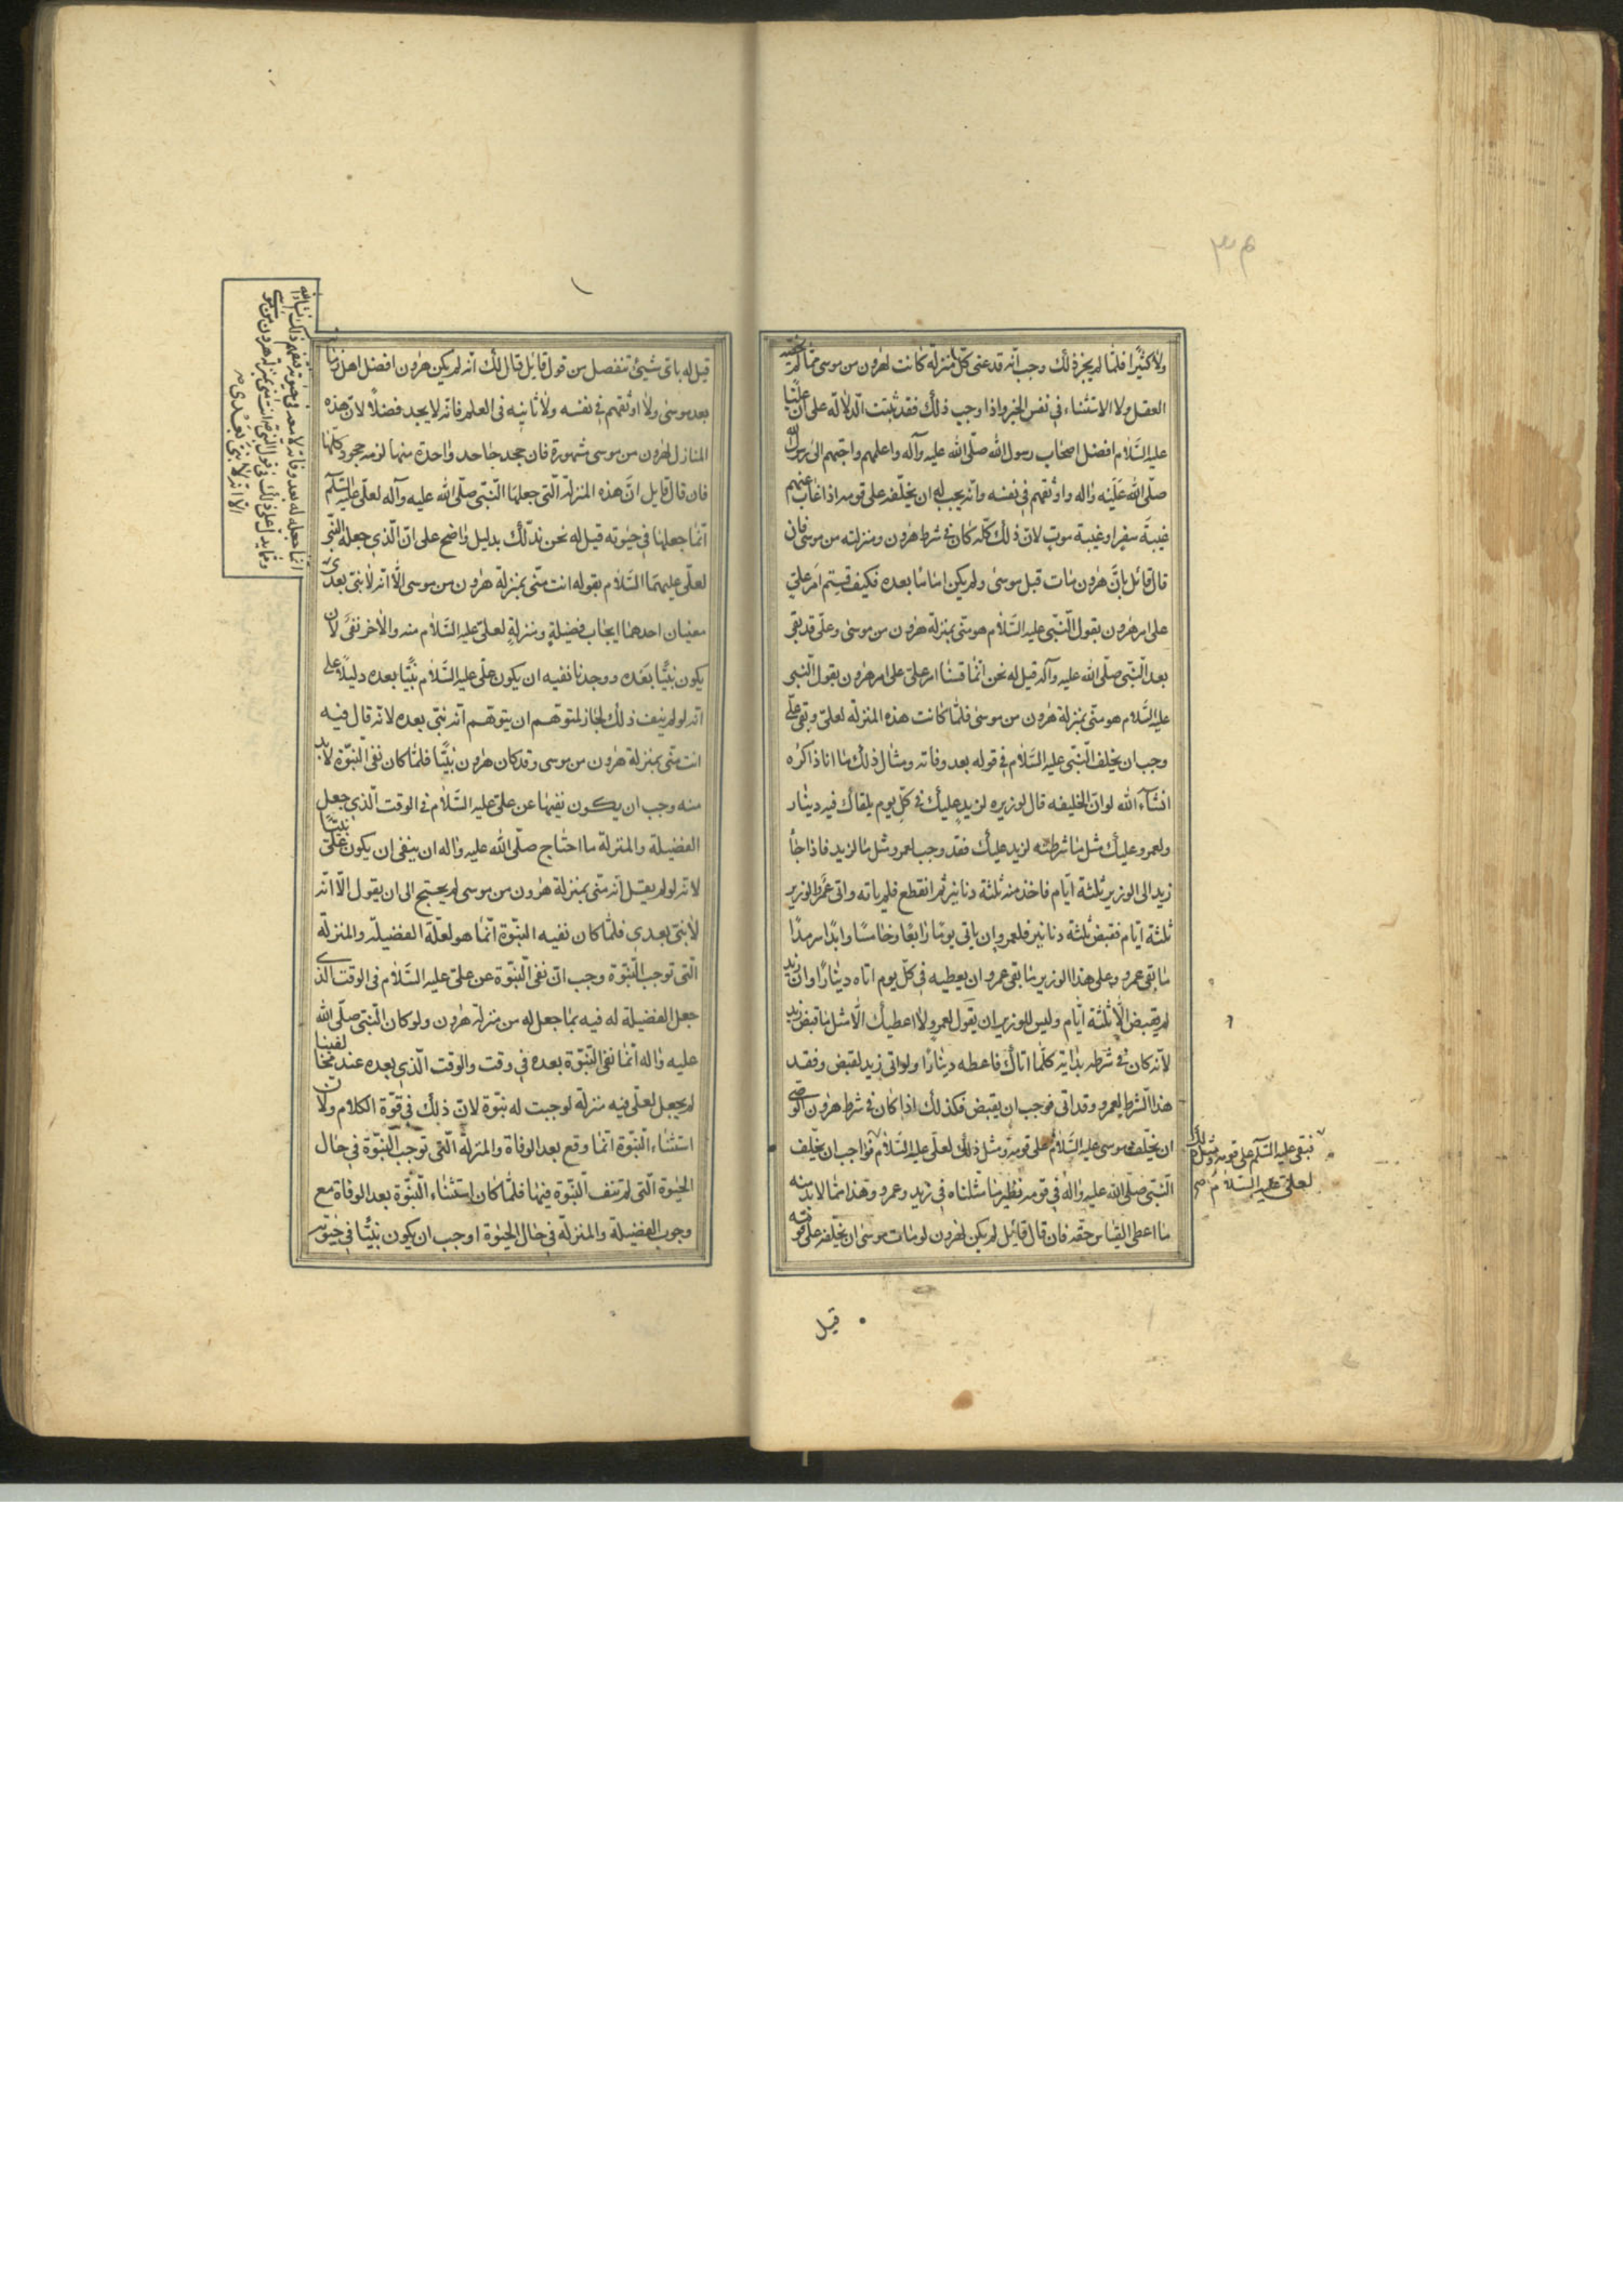 ولا كثيرا فلما لم يجز ذلك وجب انه قد عنى كل منزلة كانت لهرون من موسى مما لم يخصه
العقل ولا الاستثناء في نفس الخبر واذا وجب ذلك فقد ثبتت الدلالة على ان عليا
عليه السلام افضل اصحاب رسول الله صلى الله عليه وآله واعلمهم واحبهم الى رسول الله
صلى الله عليه واله واوثقهم في نفسه وانه يجب له ان يخلفه على قومه اذا غاب عنهم
غيبة سفر او غيبة موت لان ذلك كله كان في شرط هرون ومنزلته من موسى فان
قال قائل بان هرون مات قبل موسى ولم يكن اماما بعده فكيف قستم امر علي
على امر هرون بقول النبي عليه السلام هو مني بمنزلة هرون من موسى وعلي قد بقى
بعد النبي صلى الله عليه وآله قيل له نحن انما قسنا امر علي على امر هرون بقول النبي
عليه السلام هو مني بمنزلة هرون من موسى فلما كانت هذه المنزلة لعلي وبقى علي
وجب ان يخلف النبي عليه السلام في قوله بعد وفاته ومثال ذلك ما انا ذاكره
انشآء الله لو ان الخليفه قال لوزيره لزيد عليك في كل يوم يلقاك فيه دينار
ولعمرو عليك مثل ما شرطته لزيد عليك فقد وجب لعمرو مثل ما لزيد فاذا جأ
زيد الى الوزير ثلثة ايام فاخذ منه ثلثة دنانير ثم انقطع فلم ياته واتى عمرو الوزير
ثلثة ايام فقبض ثلثة دنانير فلعمرو ان ياتى يوما رابعا وخامسا وابدا سرمدا
ما بقى عمرو وعلى هذا الوزير ما بقى عمرو ان يعطيه في كل يوم اتاه دينارا وان كان زيد
لم يقبض الا ثلثة ايام وليس للوزير ان يقول لعمرو لا اعطيك الا مثل ما قبض زيد
لانه كان في شرط زيد انه كلما اتاك فاعطه دينارا ولو اتى زيد لقبض وفعل
هذا الشرط لعمرو وقد اتى فوجب ان يقبض فكذلك اذا كان في شرط هرون الوصي
ان يخلف موسى عليه السلام على قومه ومثل ذلك لعلي عليه السلام فواجب ان يخلف
فبقى عليه السلم على قومه ومثل ذلك
لعلي عليه السلام صح
النبي صلى الله عليه واله في قومه نظير ما مثلناه في زيد وعمرو وهذا مما لا بد منه
ما اعطى القياس حقه فان قال قائل لم يكن لهرون لو مات موسى ان يخلفه على قومه
قيل
قيل له باى شيئ تنفصل من قول قايل قال لك انه لم يكن هرون افضل اهل زمانه
بعد موسى ولا اوثقهم في نفسه ولا ثانيه في العلم فانه لا يجد فضلا لان هذه
المنازل لهرون من موسى مشهورة فان جحد جاحد واحدة منها لزمه جحود كلها
فان قال قايل ان هذه المنزلة التى جعلها النبي صلى الله عليه وآله لعلي عليه السلم
انما جعلها في حيوته قيل له نحن ندلك بدليل واضح على ان الذي جعله النبي
لعلي عليهما السلام بقوله انت مني بمنزلة هرون من موسى الا انه لا نبي بعدى
انما جعله له بعد وفاته لا معه في حيوته فتفهم ذلك انشاء الله
ومما يدل على ذلك في قول النبي ص انت مني بمنزلة هرون من موسى
الا انه لا نبي بعدي ص
معنيان احدهما ايجاب فضيلة ومنزلة لعلي عليه السلام منه والاخر نفى لان
يكون نبيا بعده ووجدنا نفيه ان يكون علي عليه السلام نبيا بعده دليلا على
انه لو لم ينف ذلك لجاز لمتوهم ان يتوهم انه نبي بعده لانه قال فيه
انت مني بمنزلة هرون من موسى وقد كان هرون نبيا فلما كان نفى النبوة لا بد
منه وجب ان يكون نفيها عن علي عليه السلام في الوقت الذي جعل
الفضيلة والمنزلة ما احتاج صلى الله عليه واله ان ينفى ان يكون علي نبيا
لانه لو لم يقل انه مني بمنزلة هرون من موسى لم يحتج الى ان يقول الا انه
لا نبي بعدي فلما كان نفيه النبوة انما هو لعلة الفضيلة والمنزلة
التى توجب النبوة وجب ان نفى النبوة عن علي عليه السلام في الوقت الذي
جعل الفضيلة له فيه بما جعل له من منزلة هرون ولو كان النبي صلى الله
عليه واله انما نفى النبوة بعده في وقت والوقت الذي بعده عند مخالفينا
لم يجعل لعلي فيه منزلة لوجبت له نبوة لان ذلك في قوة الكلام ولان
استثناء النبوة انما وقع بعد الوفاة والمنزلة التى توجب النبوة في حال
الحيوة التى لم تنف النبوة فيها فلما كان استثناء النبوة بعد الوفاة مع
وجوب الفضيلة والمنزلة في حال الحيوة اوجب ان يكون نبيا في حيوته